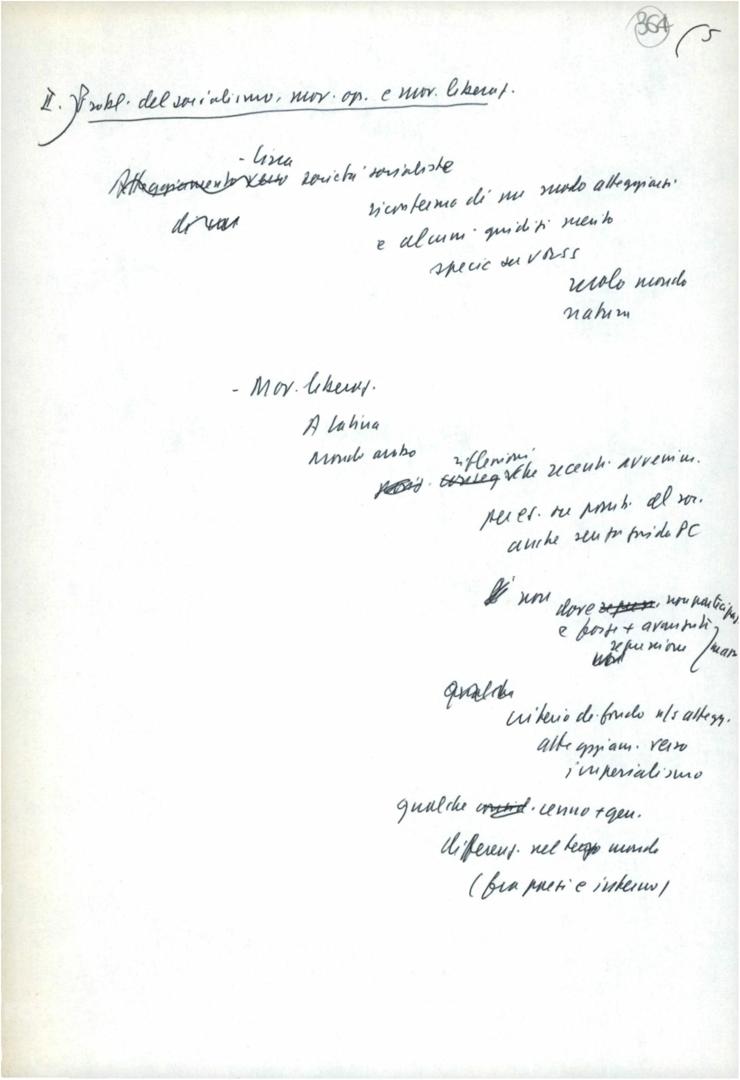 364 5
II. Probl. del socialismo, mov. op. e mov. liberaz.
- linea
Atteggiamento verso società socialiste
riconferma di ns modo atteggiarci
e alcuni giudizi merito
specie su URSS
ruolo mondo
natura
- Mov. liberaz.
A latina
Mondo arabo
riflessioni
che recenti avvenim.
per es. su possib. del soc.
anche senza guida PC
non dove non partecipaz.
e forze + avanzate
repressione
criterio di fondo n/s attegg.
atteggiam. verso
imperialismo
qualche cenno + gen.
differenz. nel terzo mondo
(fra paesi e interno)